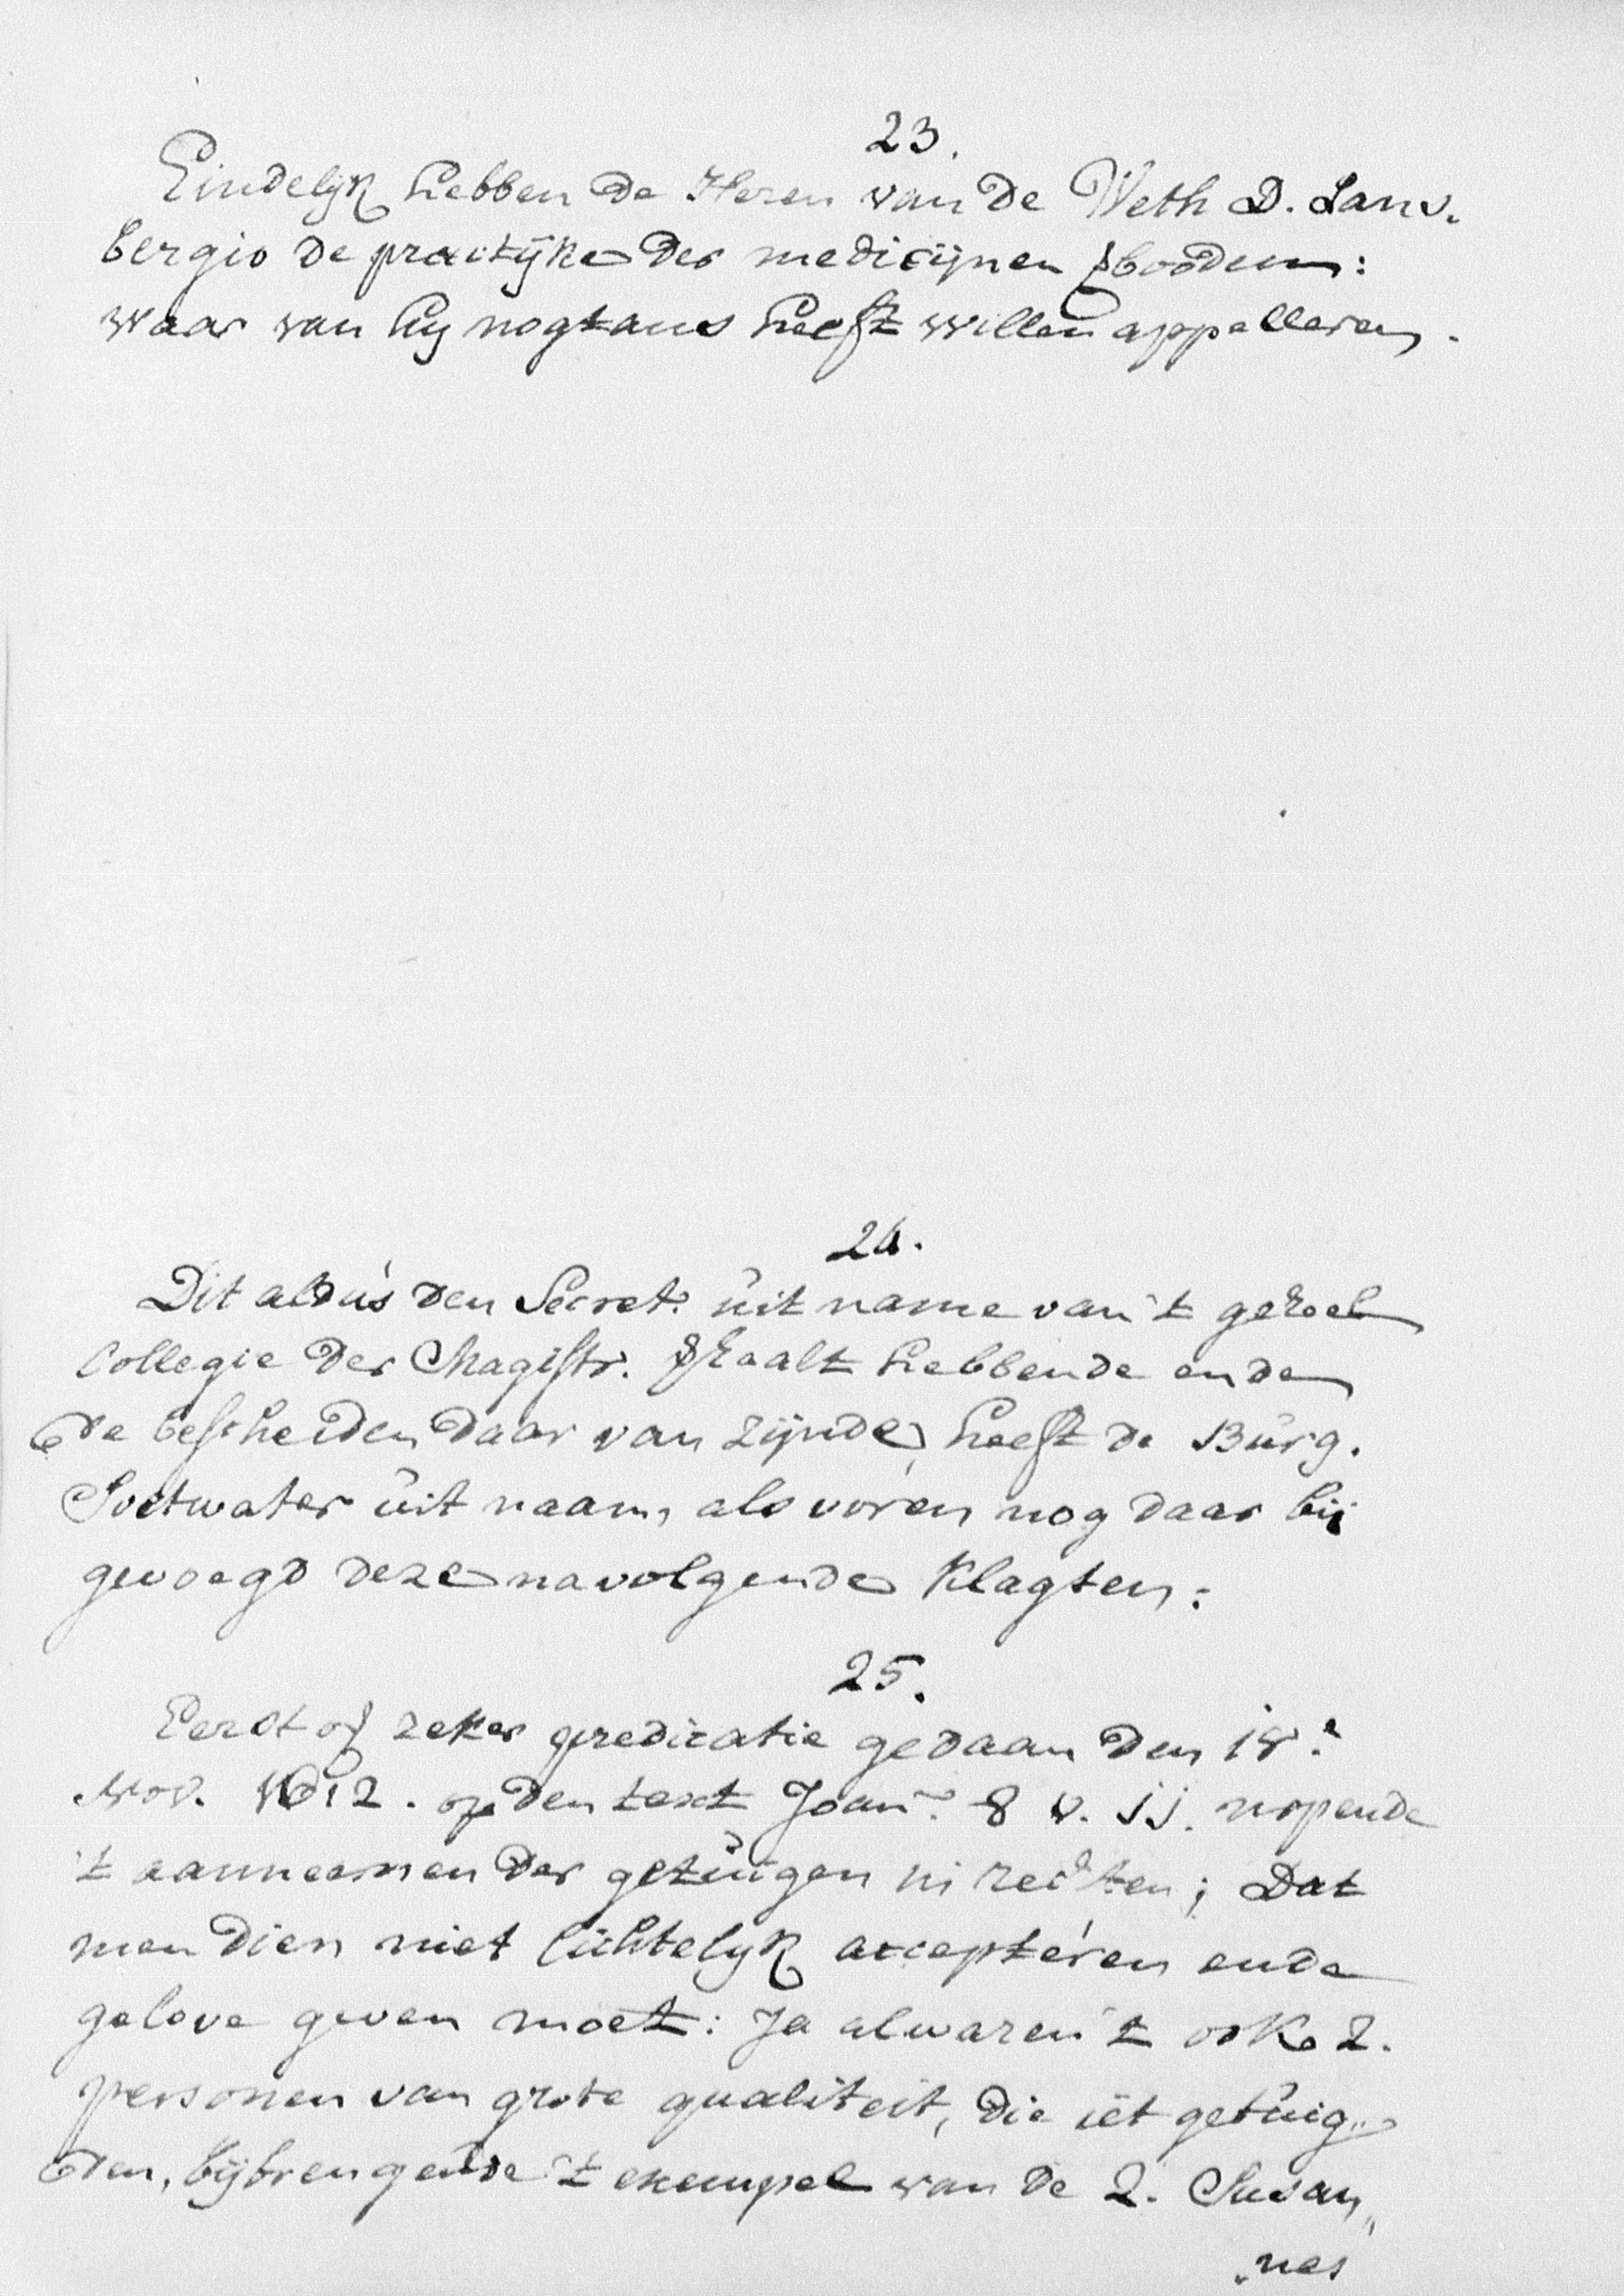 23.
Eindelijk hebben de Heren van de Weth D. Lans-
bergio de practijke der medicijnen  :
waar van hy nogtans heeft willen appelleren.
24.
Dit aldus den Secret. uit name van 't geheel
Collegie der Magistr.  hebbende ende
de bescheiden daar van zijnde, heeft de Burg.
Soetwater uit naam als voren nog daar bij
gevoegd deze navolgende klagten:
25.
Eerst  zeker predicatie gedaan den 18.e
Nov. 1612. op den text Joan. 8 v.  nopende
't aanneemen der getuigen in rechten; Dat
men dien niet lichtelijk accepteren ende
gelove geven moet: Ja al waren 't ook 2.
personen van grote qualiteit, die iet getuig-
den, bijbrengende 't exempel van de 2. Susan„
nes